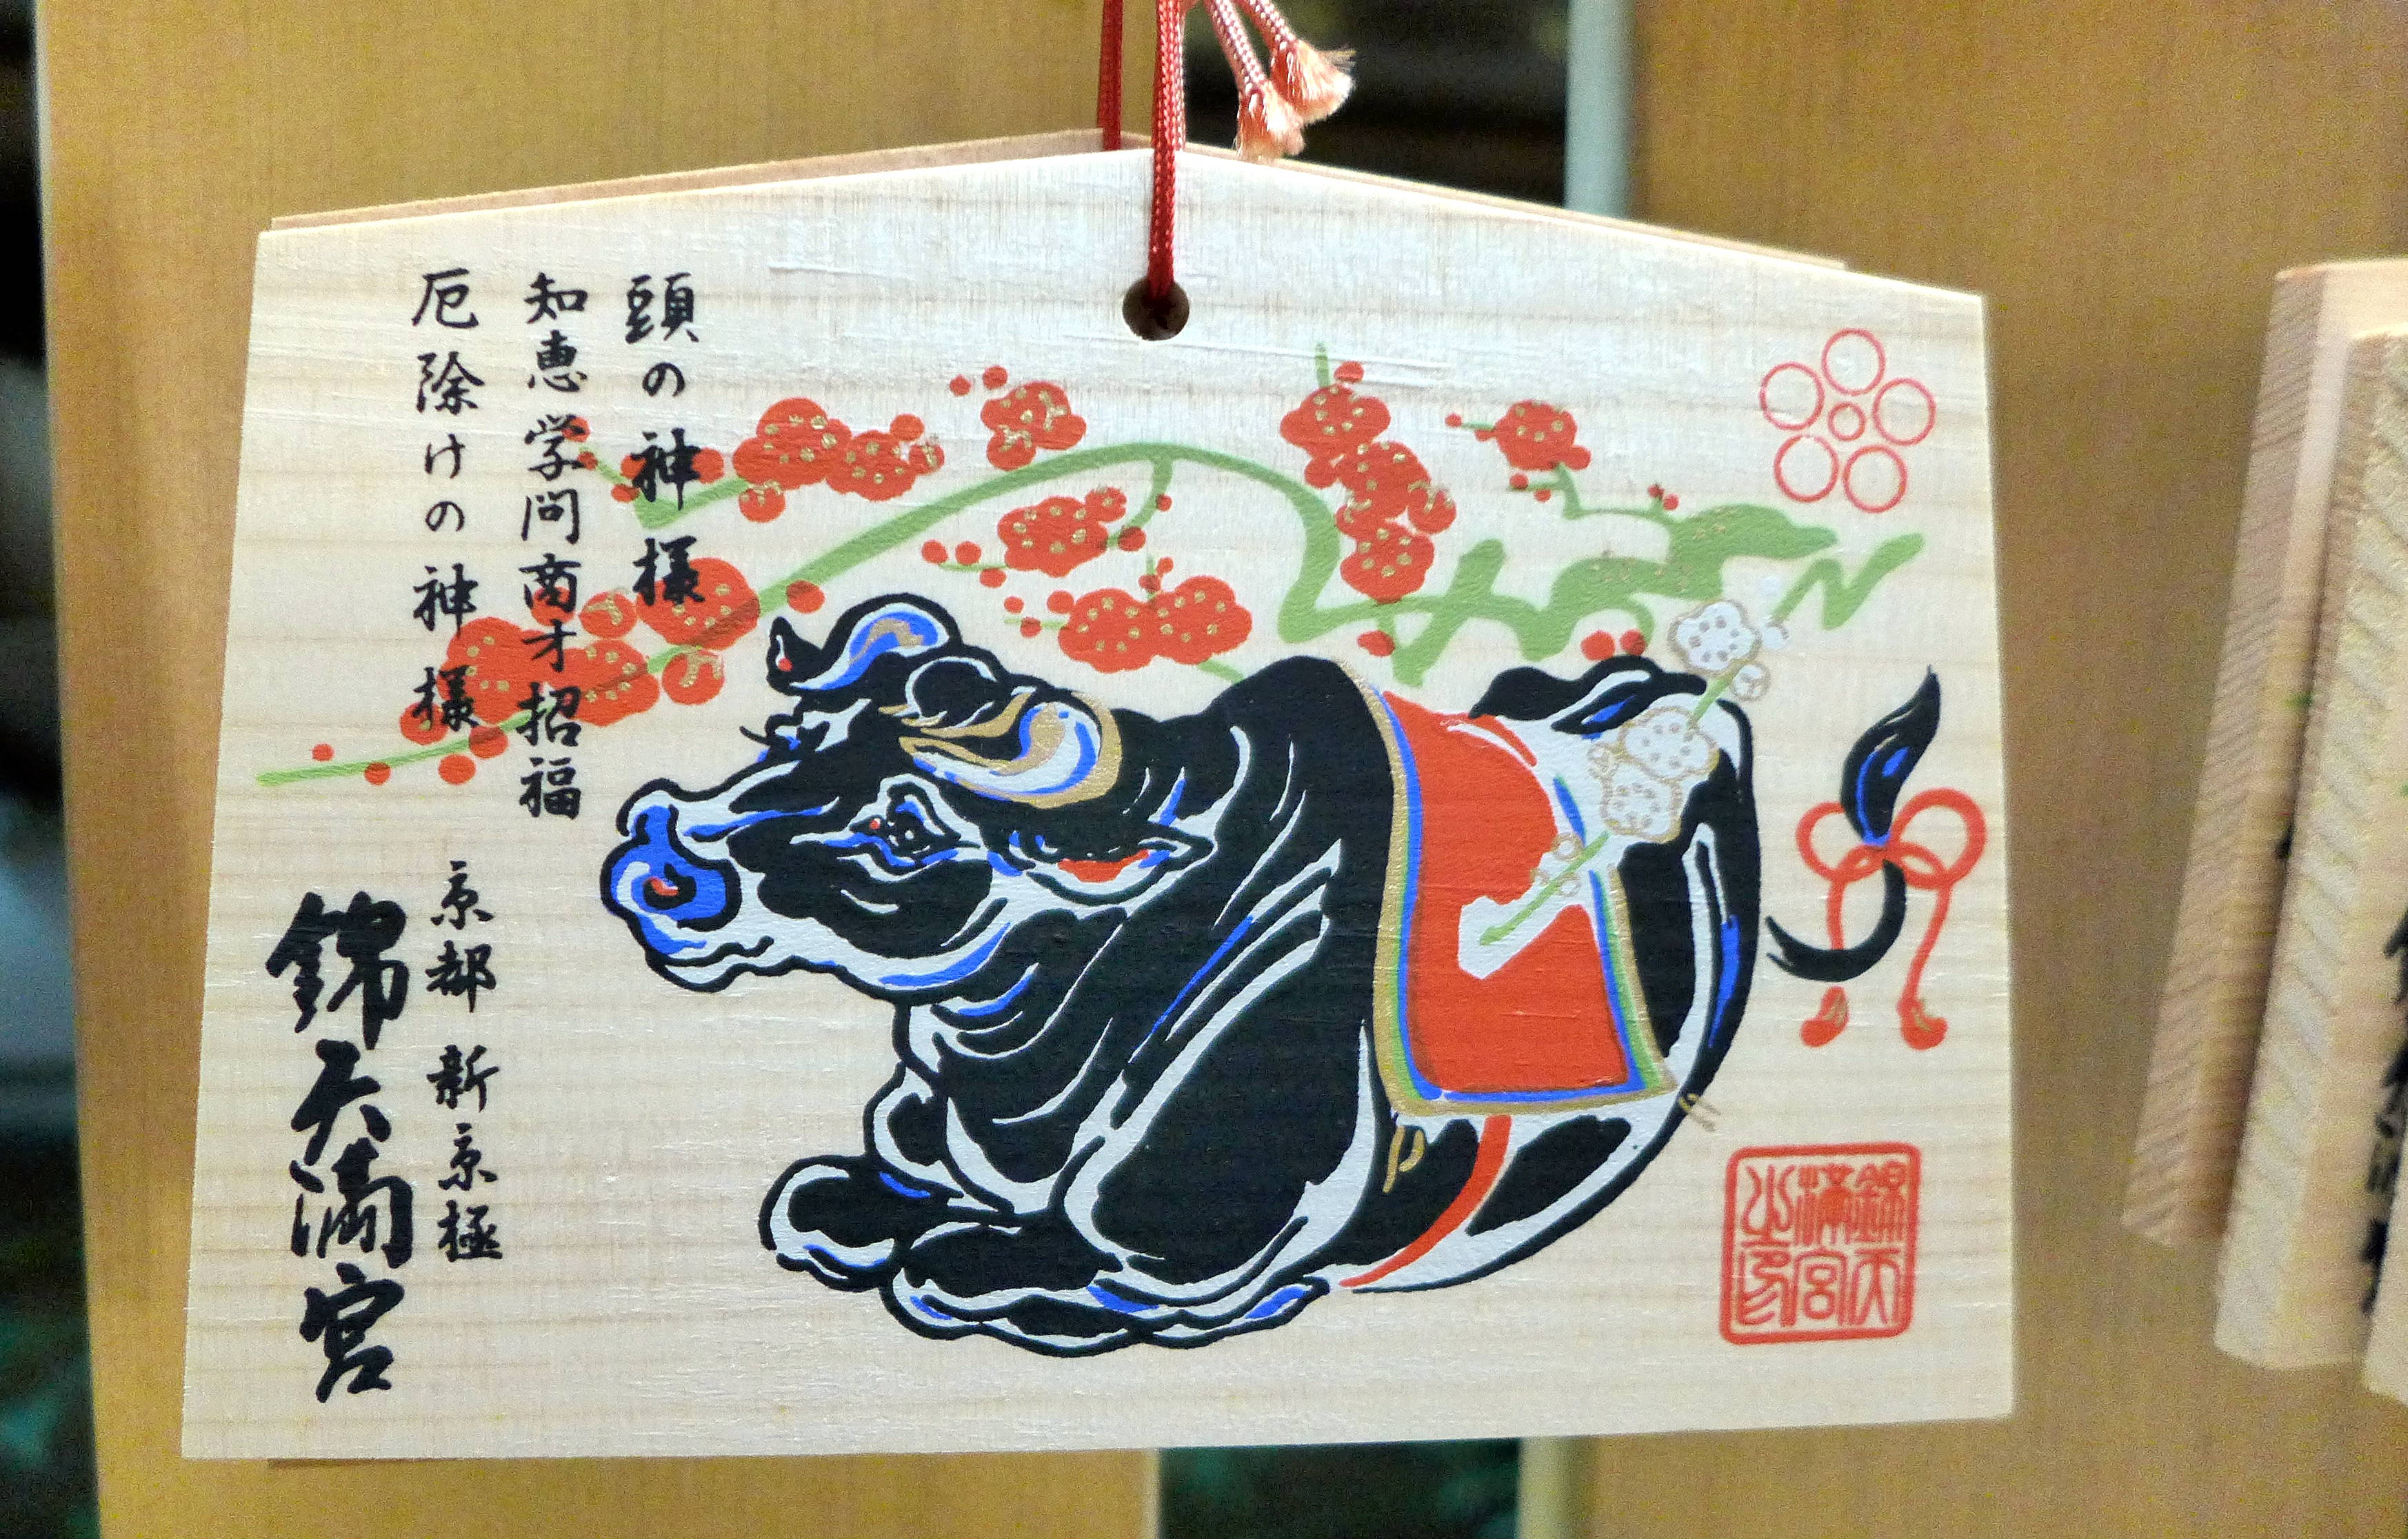 頭の神様
知恵学問商才招福
厄除けの神様
京都 新京極
錦天満宮
錦天
満宮
之印